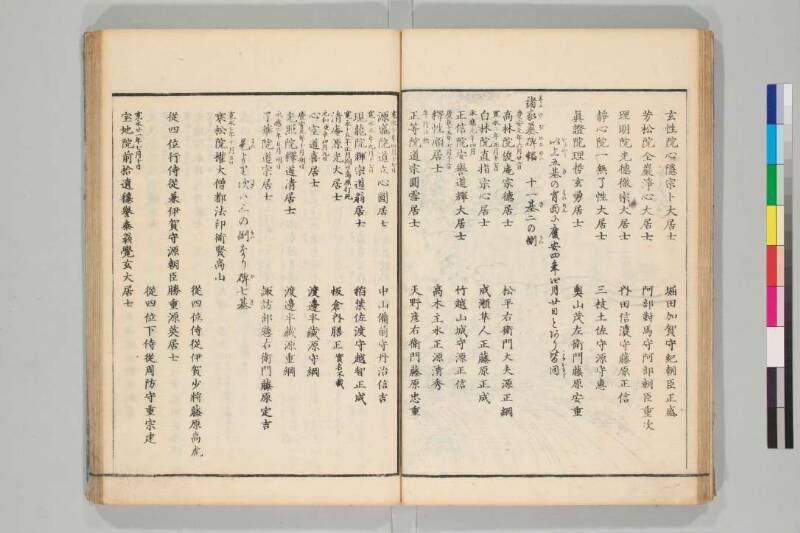 玄性院心隠宗卜大居士　堀田加賀守紀朝臣正盛
芳松院全巖淨心大居士　阿部對馬守阿部朝臣重次
理明院光徳徹宗大居士　内田信濃守藤原正信
靜心院一無了性大居士　三枝土佐守源守惠
眞證院理哲玄勇居士　奥山茂左衛門藤原安重
以上五基の背面に慶安四年四月廿日とあり皆同
諸家墓碑銘　十一基二の側
高林院俊庵宗徳居士　松平右衛門大夫源正綱
白林院直指宗心居士　成瀬隼人正藤原正成
正信院安譽道輝大居士　竹越山城守源正信
釋性順居士　高木主水正源清秀
正等院道宗圓雪居士　天野彦右衛門藤原忠重
源富院道立心圓居士　中山備前守丹治信吉
現龍院輝宗道翁居士　稻葉佐渡守越智正成
清庵源光大居士　板倉内膳正實名不載
心室道喜居士　渡邊半藏源守綱
光照院釋道清居士　渡邊半藏源重綱
了華院道宗居士　諏訪部惣右衛門藤原定吉
是より次ハ三の側なり碑七基
寒松院權大僧都法印衜賢高山
從四位侍從伊賀少將藤原高虎
從四位行侍從兼伊賀守源朝臣勝重源英居士
從四位下侍從周防守重宗建
寛永十一年七月十日
宝地院前拾遺徳譽泰翁覺玄大居士